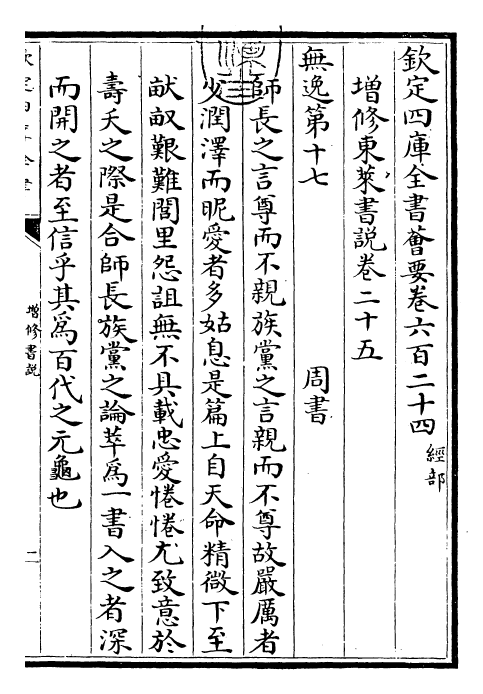 欽定四庫全書薈要卷六百二十四 經部
增修東萊書說卷二十五
無逸第十七 周書
師長之言尊而不親族黨之言親而不尊故嚴厲者
少潤澤而昵愛者多姑息是篇上自天命精微下至
畎畝艱難閭里怨詛無不具載忠愛惓惓尤致意於
壽夭之際是合師長族黨之論萃爲一書入之者深
而開之者至信乎其爲百代之元龜也
增修書說